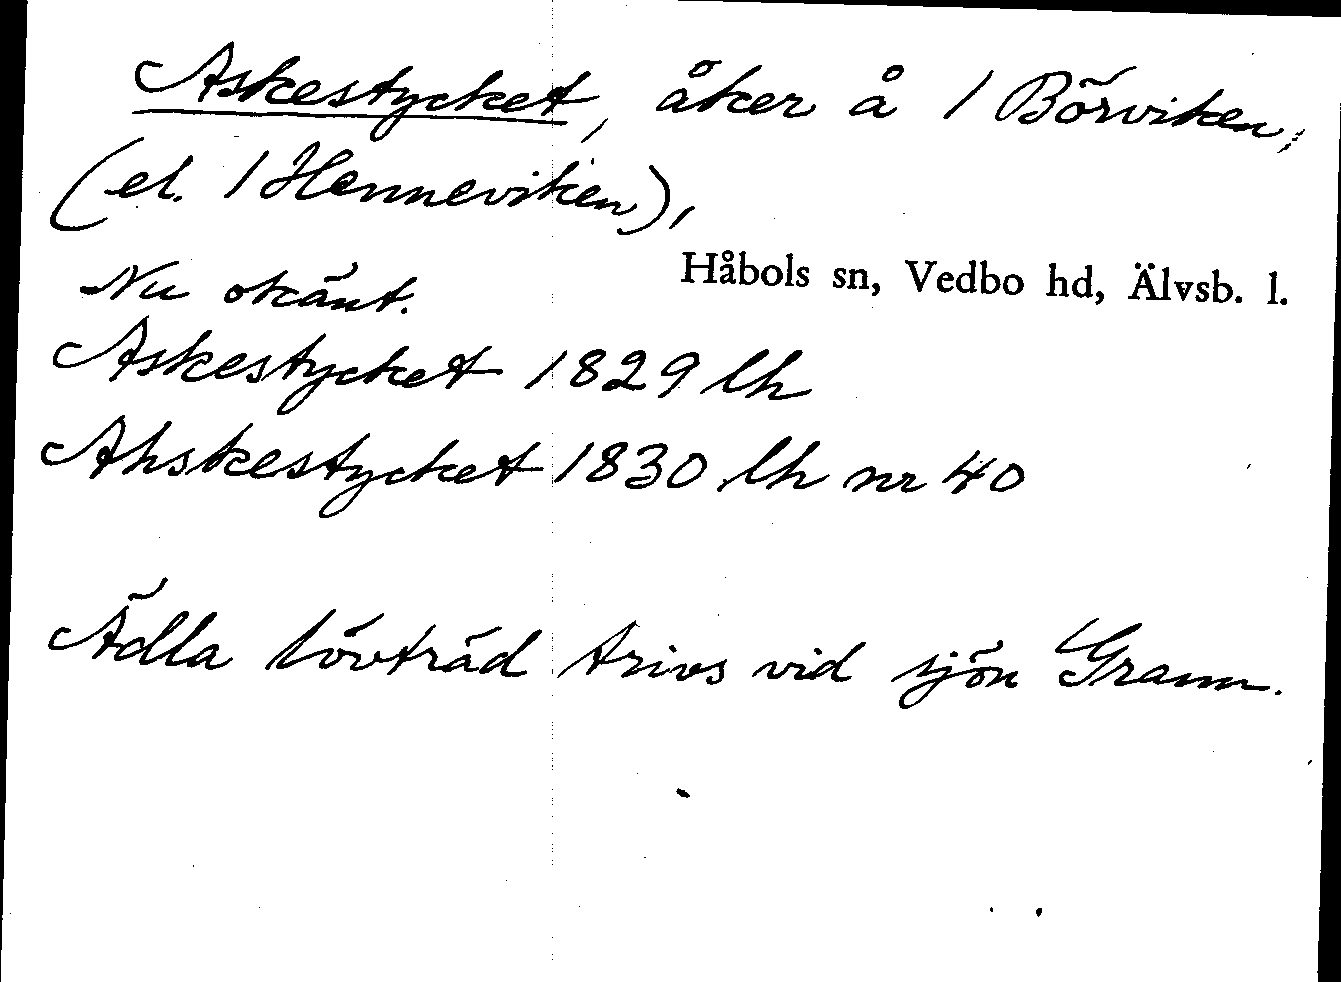 Askestycket, åker å 1 Börviken,
(el. 1 Henneviken),
Håbols sn, Vedbo hd, Älvsb. l.
Nu okänt.
Askestycket 1829 lh
Ahskestycket 1830 lh nr 40
Ädla lövträd trivs vid sjön Grann.